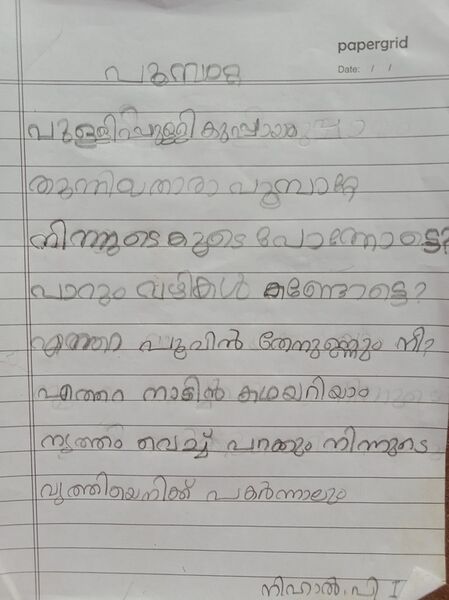 papergrid
Date: / /
പൂമ്പാറ്റ
പുള്ളിപ്പുള്ളി കുപ്പായം
തുന്നിയതാരാ പൂമ്പാറ്റേ
നിന്നുടെ കൂടെ പോന്നോട്ടെ?
പാറും വഴികൾ കണ്ടോട്ടെ?
എത്തറ പൂവിൻ തേനുണ്ണും നീ?
എത്തറ നാടിൻ കഥയറിയാം
നൃത്തം വെച്ച് പറക്കും നിന്നുടെ
വൃത്തിയെനിക്ക് പകർന്നാലും
നിഹാൽ.പി I